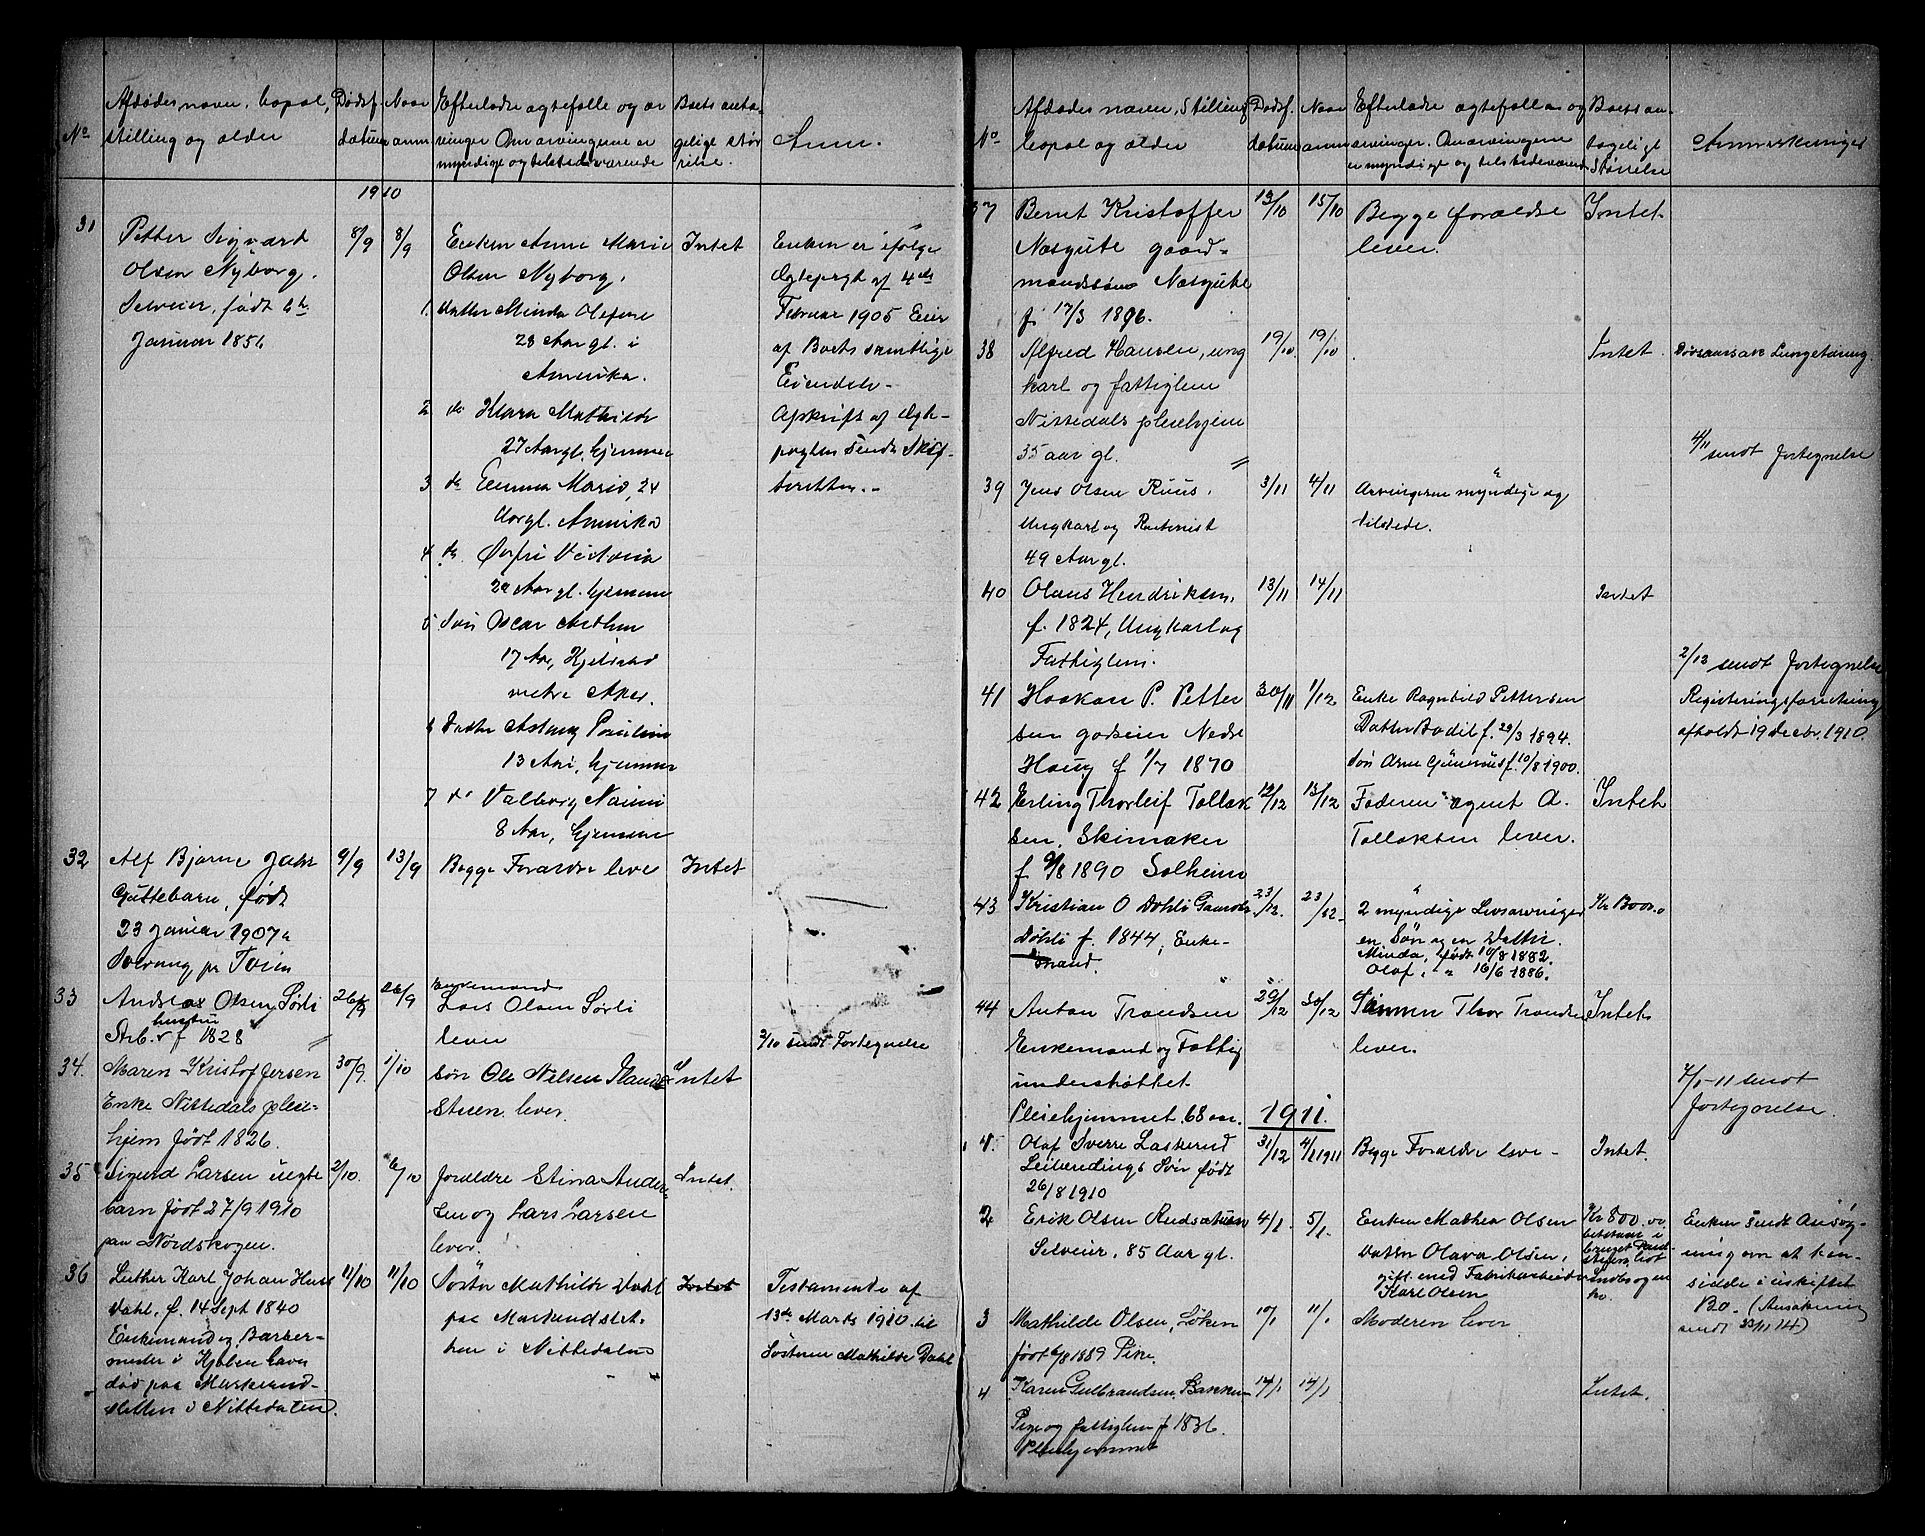 No
Afdødes navn, bopæl,
stilling og alder
Dødsf.
datum
Naar
anm.
Efterladte ægtefælle og ar
vinger Om arvingerne er
myndige og tilstedeværende
Boets anta-
gelige stør
relse.
Anm.
1910
31
Petter Sigvard
Olsen Nyborg.
Selveier, født
Januar 1851
8/9
8/9
Enken Anne Marie
Olsen Nyborg.
1. datter Minda Olefine
28 Aar gl. i
Amerika.
2 do Klara Mathilde
27 Aar gl. hjemme
3 do Emma Marie, 24
Aar gl. Amerika
4 do Victoria
22 Aar gl. hjemme
5 Søn Oscar
17 Aar,
Aker.
6 Datter Aslaug Pauline
13 Aar, hjemme
7 do Valborg Naimi
8 Aar, hjemme
Intet
Enken er ifølge
Ægtepagt af 4de
Februar 1905 Eier
af Boets samtlige
Eiendele.
Afskrift af Ægte-
pagten sendt Skif-
teretten.
32
Alf Bjarne
Guttebarn, født
23 Januar 1907
Solvang pr
9/9
13/9
Begge Forældre leve
Intet
33
Andrea Olsen Sørli
hustru
Arb. f 1828
26/9
26/9
Enkemand
Lars Olsen Sørli
lever
3/10 sendt Fortegnelse
34.
Maren Kristoffersen
Enke Nittedals pleie-
hjem født 1826.
30/9.
1/10
Søn Ole Nilsen
Stuen lever.
Intet
35
Sigurd Larsen uegte
barn født 27/9 1910
paa Nordskogen.
2/10.
6/10
Forældre Stina Ander
sen og Lars Larsen
lever.
Intet.
36
Luther Karl Johan
Dahl, f. 14 Sept 1840
Enkemand og Barber-
mester i Kjøbenhavn
død paa Markerud-
sletten i Nittedalen.
11/10
11/10
Søster Mathilde Dahl
paa Markerudslet-
ten i Nittedalen
Intet
Testamente af
13de Marts 1910 til
Søsteren Mathilde Dahl
No
Afdødes navn, Stilling
bopæl og alder
Dødsf.
datum
Naar
anm
Efterladte ægtefælle og
arvinger. Om arvingerne
er myndige og tilstedeværend
Boets an-
tagelige
Størrelse
Anmerkninger
37
Bernt Kristoffer
Næsgute gaard-
mandssøn Næsgute
f. 17/3 1896.
13/10
15/10
Begge foræeldre
lever.
Intet
38
Alfred Hansen, ung
karl og fattiglem
Nittedals pleiehjem
35 aar gl.
19/10
19/10
Intet
Dødsaarsak Lungetæring
4/11 sendt fortegnelse
39
Jens Olsen Ruus.
Ungkarl og Rentenist
49 Aar gl.
3/11
4/11
Arvingerne myndige og
tilstede.
40
Olaus Hendriksen.
f. 1824, Ungkarl og
Fattiglem.
13/11
14/11
Intet
2/12 sendt fortegnelse
41
Haakon P. Petter
sen gaardeier Nedre
Haug f 1/7 1870
30/11
1/12
Enke Ragnhild Pettersen
Datter Bodil f. 29/3 1894.
Søn Arne f. 10/8 1900.
Registreringsforretning
afholdt 19 Decbr. 1910.
42
Erling Thorleif Tollak
sen. Skimaker
f 9/8 1890 Solheim
12/12
13/12
Faderen agent A.
Tollaksen lever.
Intet
43
Kristian O Døhli Gaardb.
Døhli f. 1844, Enke-
mand.
23/12.
23/12
2 myndige Livsarvinger
en Søn og en Datter.
Minda, født 10/8 1882.
Olaf, " 16/6 1886.
44
Anton Trondsen
Enkemand og Fattig
understøttet
Pleiehjemmet, 68 aar.
29/12
30/12
Sønnen Thor Trondsen
lever.
Intet
7/1-11 sendt
fortegnelse.
1911
1.
Olaf Sverre Laskerud
Leilændings Søn født
26/8 1910
31/12
4/1 1911
Begge Forældre leve -
Intet.
2
Erik Olsen
Selveier, 85 Aar gl.
4/1
5/1
Enken Mathea Olsen
Datter Olava Olsen,
gift med Fabrikarbeider
Karl Olsen
Kr 800.00
bestaar i
Indbo og en
ko.
Enken sendt Ansøg-
ning om at hen-
sidde i uskiftet
Bo. (Ansøkning
sendt 23/1 11)
3
Mathilde Olsen, Løken
født 6/8 1889 Pike.
10/1
11/1
Moderen lever
4
Karen Gulbrandsen, Bakken
Pige og fattiglem f 1836.
Pleiehjemmet
14/1
14/1
Intet.